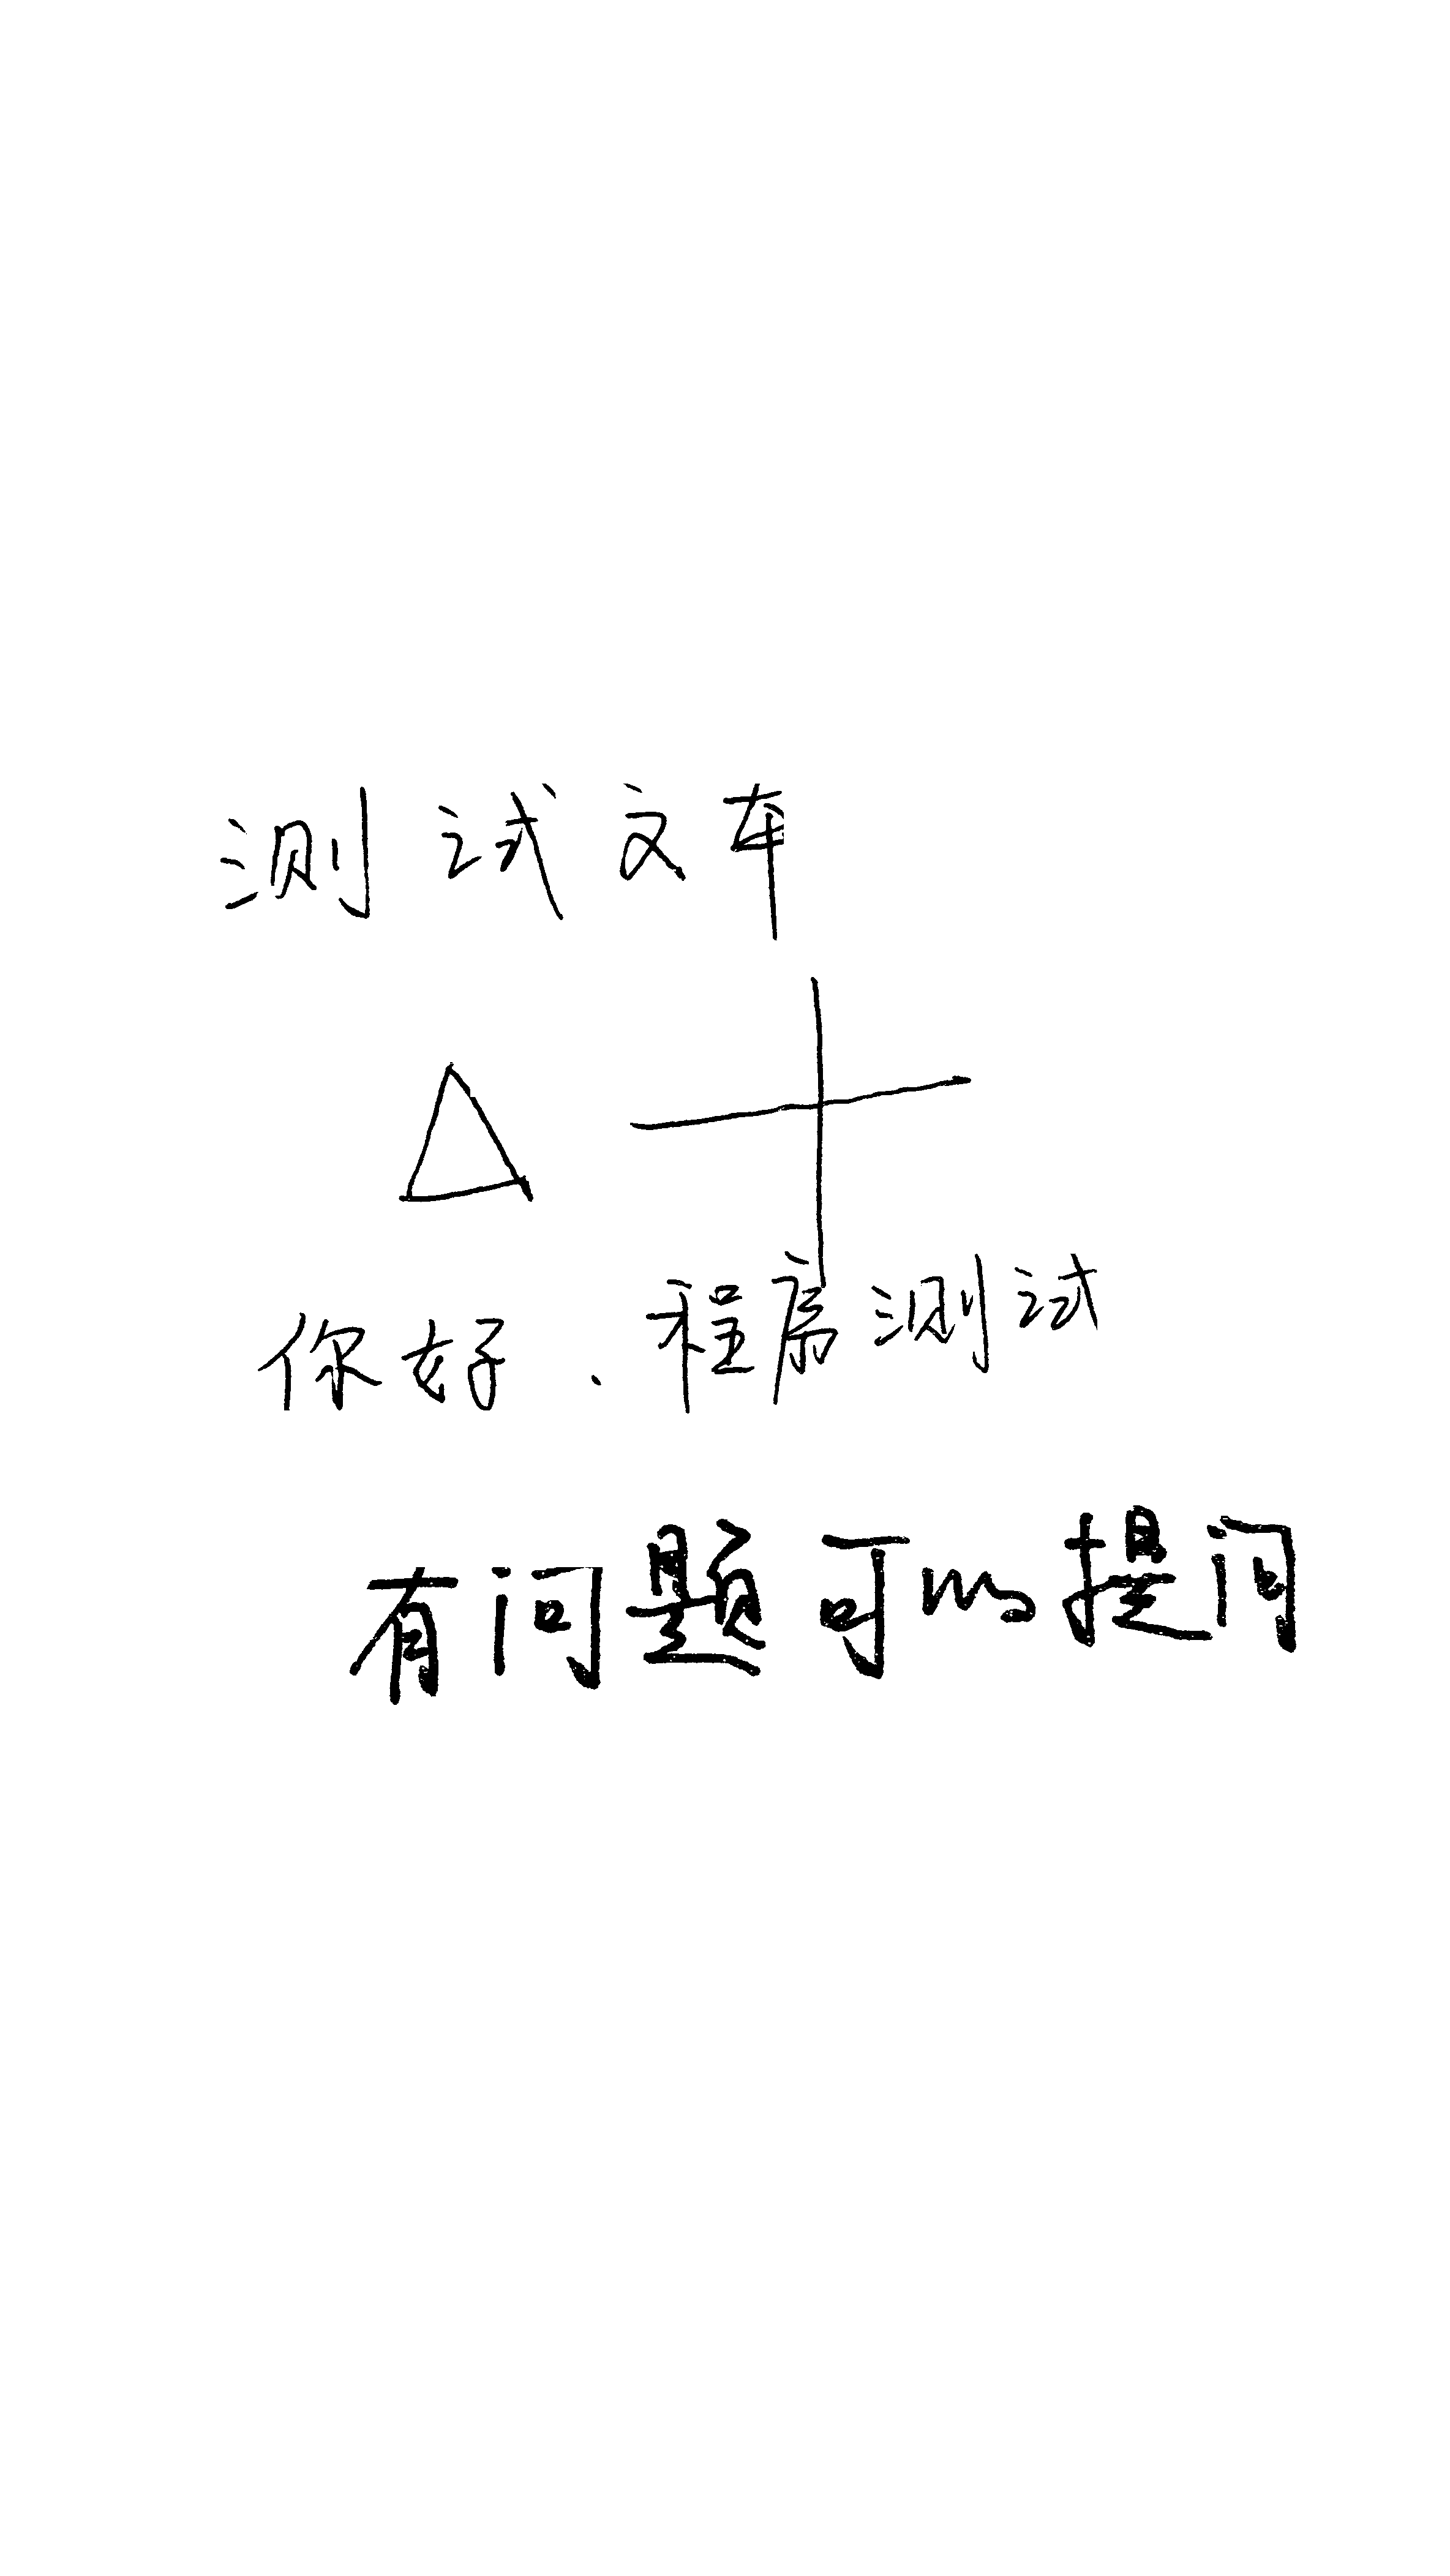 测试文本
你好、程序测试
有问题可以提问